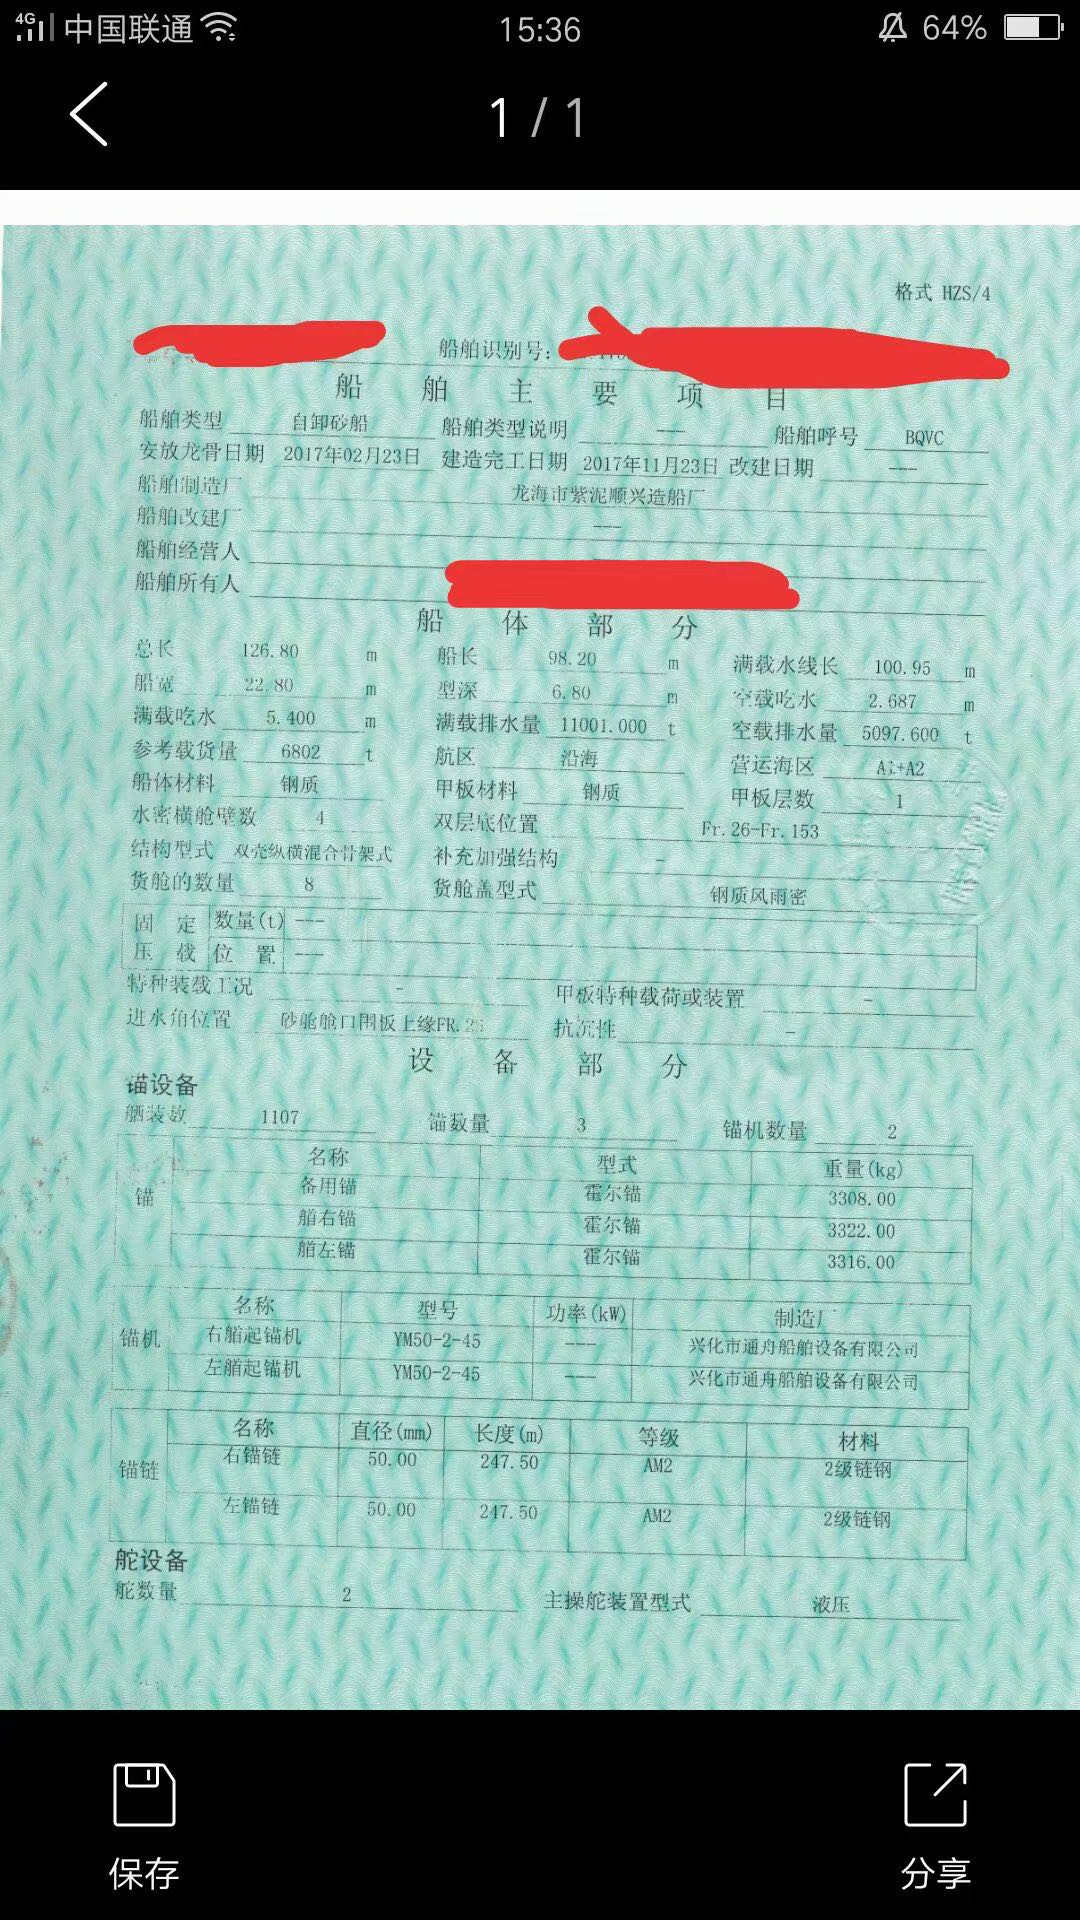 4G 中国联通 15:36 64%
1 / 1
格式 HZS/4
船舶识别号:
船舶主要项目
船舶类型 自卸砂船 船舶类型说明 --- 船舶呼号 BQVC
安放龙骨日期 2017年02月23日 建造完工日期 2017年11月23日 改建日期 ---
船舶制造厂 龙海市紫泥顺兴造船厂
船舶改建厂 ---
船舶经营人
船舶所有人
船体部分
总长 126.80 m 船长 98.20 m 满载水线长 100.95 m
船宽 22.80 m 型深 6.80 m 空载吃水 2.687 m
满载吃水 5.400 m 满载排水量 11001.000 t 空载排水量 5097.600 t
参考载货量 6802 t 航区 沿海 营运海区 A1+A2
船体材料 钢质 甲板材料 钢质 甲板层数 1
水密横舱壁数 4 双层底位置 Fr.26-Fr.153
结构型式 双壳纵横混合骨架式 补充加强结构 -
货舱的数量 8 货舱盖型式 钢质风雨密
固定 数量(t) ---
压载 位置 ---
特种装载工况 - 甲板特种载荷或装置 -
进水角位置 砂舱舱口围板上缘FR.2 抗沉性 -
设备部分
锚设备
舾装数 1107 锚数量 3 锚机数量 2
名称 型式 重量(kg)
锚 备用锚 霍尔锚 3308.00
艏右锚 霍尔锚 3322.00
艏左锚 霍尔锚 3316.00
名称 型号 功率(kW) 制造厂
锚机 右艏起锚机 YM50-2-45 --- 兴化市通舟船舶设备有限公司
左艏起锚机 YM50-2-45 --- 兴化市通舟船舶设备有限公司
名称 直径(mm) 长度(m) 等级 材料
锚链 右锚链 50.00 247.50 AM2 2级链钢
左锚链 50.00 247.50 AM2 2级链钢
舵设备
舵数量 2 主操舵装置型式 液压
保存 分享